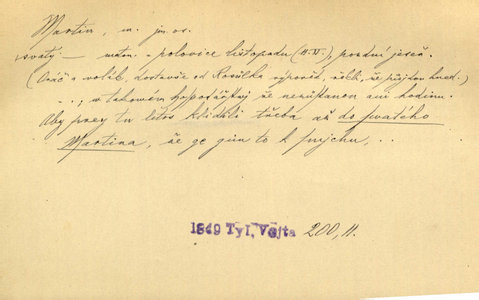 Martin, m. jm. os.
svatý — meton. - polovice listopadu (11.XI.), pozdní jeseň.
(Oráč a voták, dostavše od Rosůlka výpověď, řekli, že půjdou hned.)
- ., v takovém hospodářství že nezůstanou ani hodinu.
Aby prey tu letos klidili třeba až do svatého
Martina, že ge gim to k smjchu, . .
1849 Tyl, Vojta 200, 11.